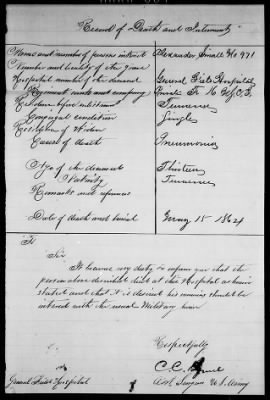 Record of Death and Interment
Name and number of person interred Alexander Small No 971
Number and locality of the grave
Hospital number of the deceased General Field Hospital
Regiment rank and company Private Co K
Residence before enlistment Tennessee
Conjugal condition Single
Residence of Widow
Cause of death Pneumonia
Age of the deceased Thirteen
Nativity Tennessee
Remarks and references
Date of death and burial 15 1864
Sir
It becomes my duty to inform you that the
person above died at this Hospital as herein
stated and that it is desired his remains should be
interred with the usual Military
Respectfully
C. C.
Ast Surgeon U. S. Army
Hospital